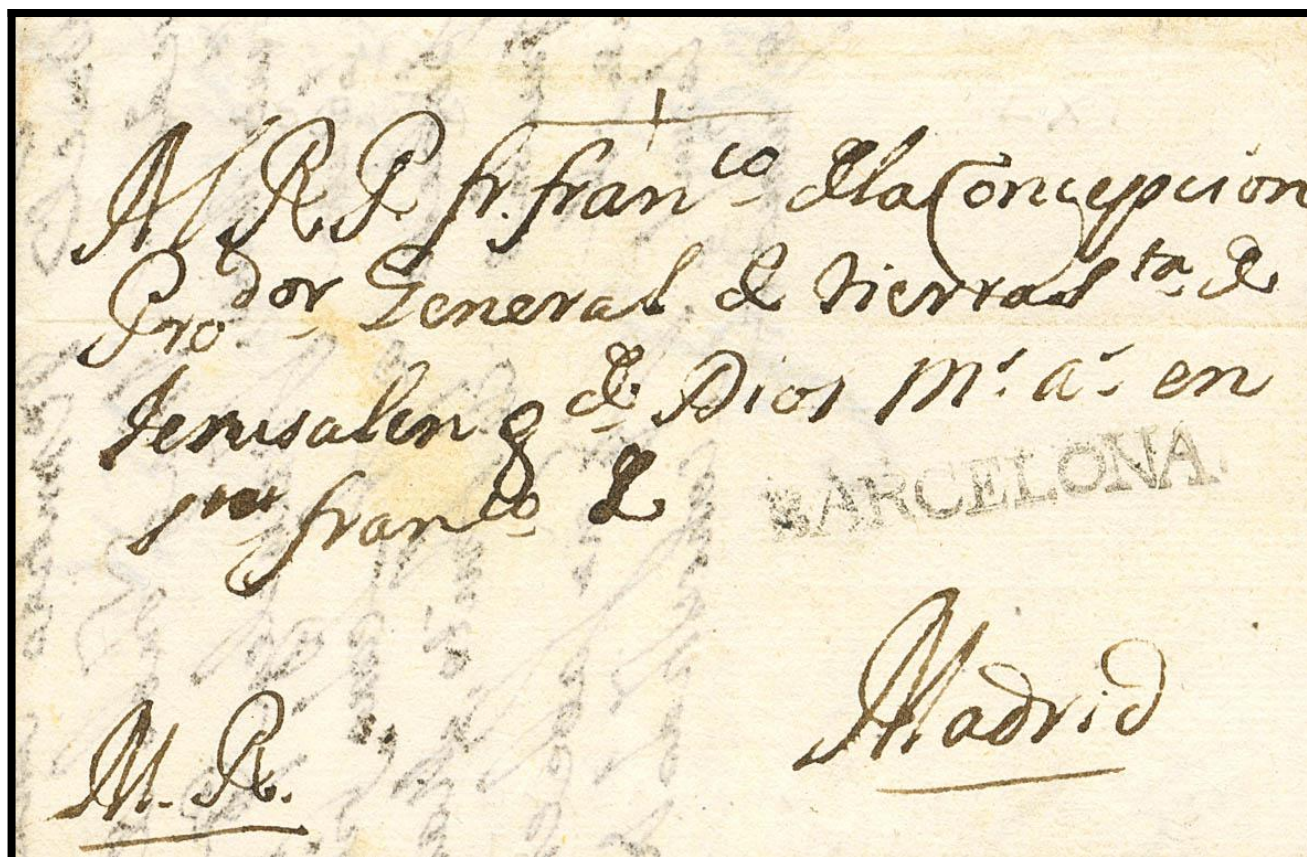 Al R. P. fr. franco dela Concepcion
Prodor General de tierra Sta de
Jerusalen gde Dios ms as en
Sn franco de
BARCELONA
Madrid
M. R.